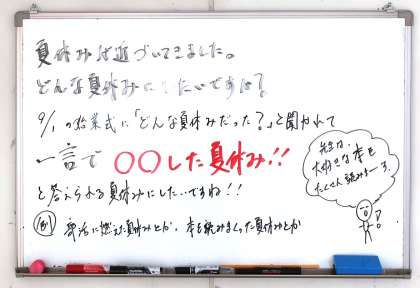 夏休みが近づいてきました。
どんな夏休みにしたいですか？
9/1の始業式に「どんな夏休みだった？」と聞かれて
一言で 〇〇した夏休み!!
と答えられる夏休みにしたいですね!!
例 部活に燃えた夏休みとか、本を読みまくった夏休みとか
先生は、
大好きな本を
たくさん読みまーす。